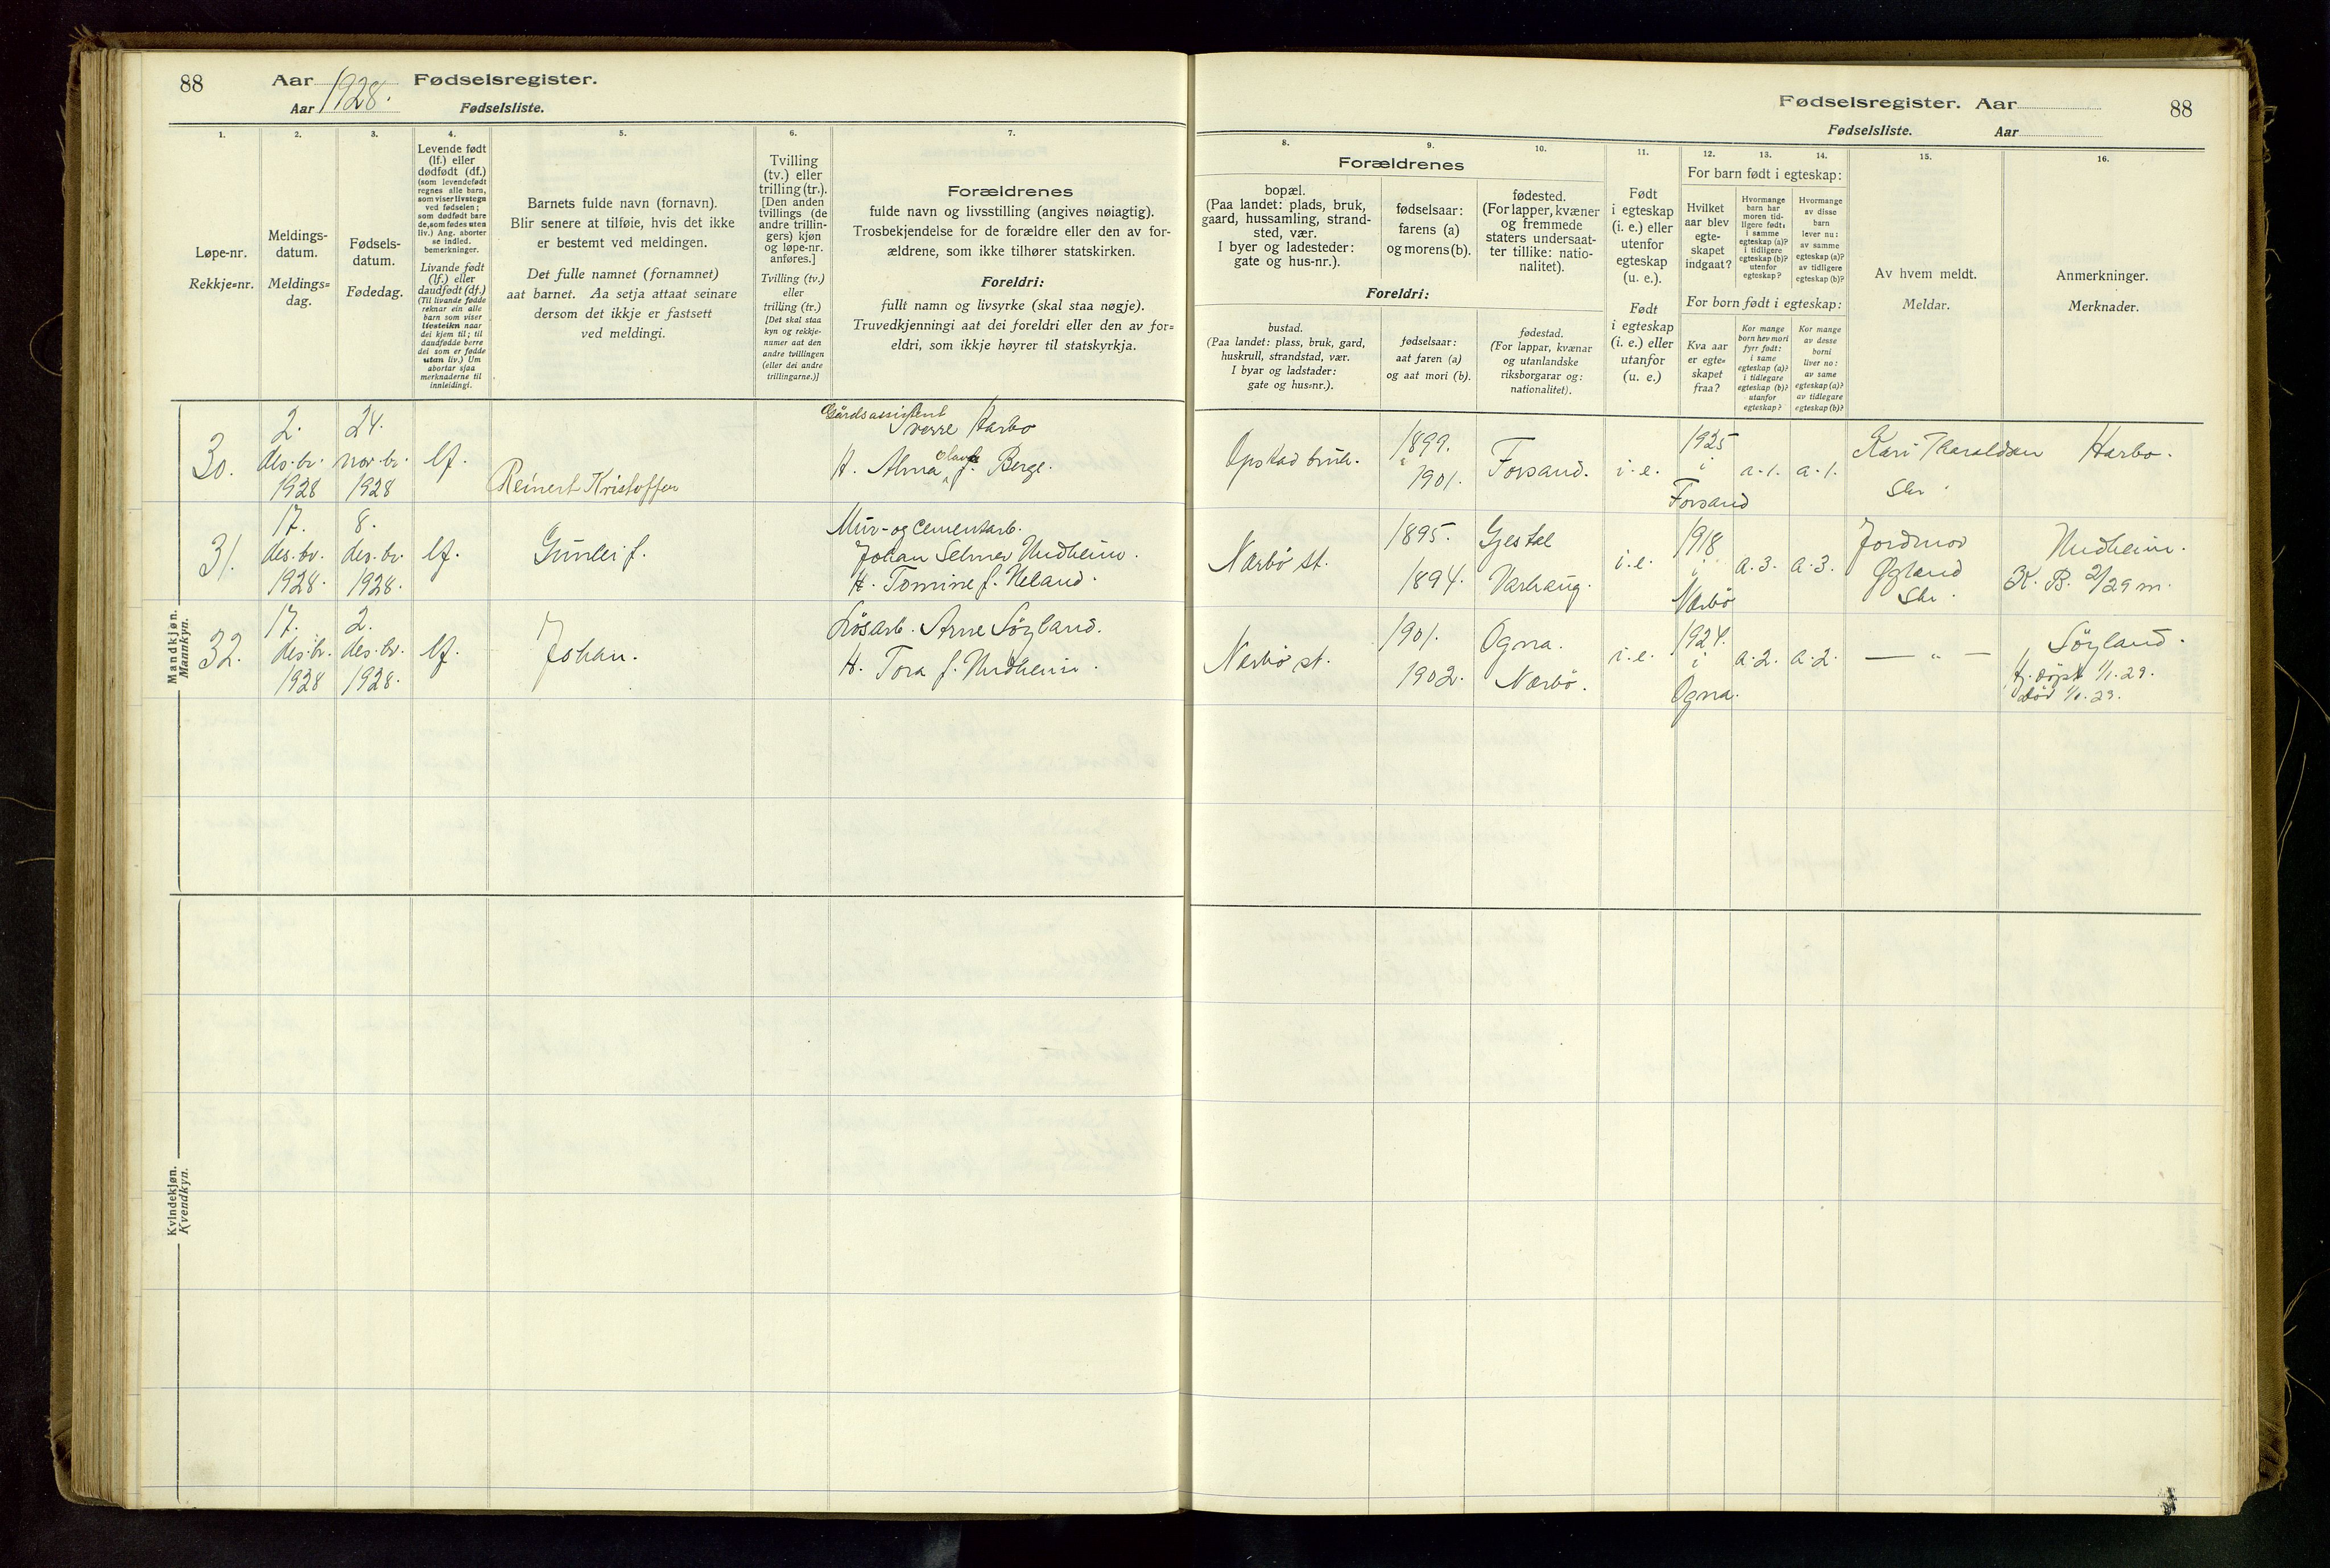 88 Aar 1928. Fødselsregister.
Aar Fødselsliste.
1. 2. 3. 4. 5. 6. 7.
Løpe-nr.
Rekkje=nr.
Meldings-
datum.
Meldings=
dag.
Fødsels-
datum.
Fødedag.
Levende født
(lf.) eller
dødfødt (df.)
(som levendefødt
regnes alle barn,
som viser livstegn
ved fødselen;
som dødfødt bare
de, som fødes uten
liv.) Ang. aborter
se indled.
bemerkninger.
Livande født
(lf.) eller
daudfødt (df.)
(Til livande fødde
reknar ein alle
barn som viser
livsteikn naar
dei kjem til; til
daudfødde berre
dei som er fødde
utan liv.) Um
abortar sjaa
merknaderne til
innleidingi.
Barnets fulde navn (fornavn).
Blir senere at tilføie, hvis det ikke
er bestemt ved meldingen.
Det fulle namnet (fornamnet)
aat barnet. Aa setja attaat seinare
dersom det ikkje er fastsett
ved meldingi.
Tvilling
(tv.) eller
trilling (tr.).
[Den anden
tvillings (de
andre trillin-
gers) kjøn
og løpe-nr.
anføres.]
Tvilling (tv.)
eller
trilling (tr.)
[Det skal staa
kyn og rekkje-
numer aat den
andre tvillingen
(eller dei andre
trillingarne.)]
Forældrenes
fulde navn og livsstilling (angives nøiagtig).
Trosbekjendelse for de forældre eller den av for-
ældrene, som ikke tilhører statskirken.
Foreldri:
fullt namn og livsyrke (skal staa nøgje).
Truvedkjenningi aat dei foreldri eller den av for=
eldri, som ikkje høyrer til statskyrkja.
Mandkjøn.
Mannkyn.
30.
2.
des.br.
1928
24.
nov.br.
1928
lf.
Reinert Kristoffer
Gårdsassistent
Sverre Harbo
H. Alma Olava f. Berge.
31.
17.
des.br.
1928.
8.
des.br.
1928.
lf.
Gunlei f.
Mur- og Cementarb.
Johan Selmer Nudheim.
H. Tomine f. Neland.
32.
17.
des.br.
1928
2.
des.br.
1928.
lf.
Johan.
Løsarb. Arne Söyland.
H. Tora f. Nudheim.
Kvindekjøn.
Kvendkyn.
Fødselsregister. Aar 88
Fødselsliste. Aar
8. 9. 10. 11. 12. 13. 14. 15. 16.
Forældrenes
bopæl.
(Paa landet: plads, bruk,
gaard, hussamling, strand-
sted, vær.
I byer og ladesteder:
gate og hus-nr.).
fødselsaar:
farens (a)
og morens (b).
fødested.
(For lapper, kvæner
og fremmede
staters undersaat-
ter tillike: natio-
nalitet).
Foreldri:
bustad.
(Paa landet: plass, bruk, gard,
huskrull, strandstad, vær.
I byar og ladstader:
gate og hus=nr.).
fødselsaar:
aat faren (a)
og aat mori (b).
fødestad.
(For lappar, kvænar
og utanlandske
riksborgarar og:
nationalitet).
Født
i egteskap
(i. e.) eller
utenfor
egteskap
(u. e.).
Født
i egteskap
(i. e.) eller
utanfor
(u. e.)
For barn født i egteskap:
Hvilket
aar blev
egte-
skapet
indgaat?
Hvormange
barn har
moren tid-
ligere født:
i samme
egteskap (a)?
i tidligere
egteskap (b)?
utenfor
egteskap?
Hvormange
av disse
barn
lever nu:
av samme
egteskap (a)?
av tidligere
egteskap (b)?
For born født i egteskap:
Kva aar
er egte=
skapet
fraa?
Kor mange
born hev mori
fyrr født:
i same
egteskap (a)?
i tidlegare
egteskap (b)?
utanfor
egteskap?
Kor mange
av desse
borni
liver no:
av same
egteskap (a)?
av tidlegare
egteskap (b)?
Av hvem meldt.
Meldar.
Anmerkninger.
Merknader.
Opstad bruk.
1899.
1901.
Forsand.
i. e.
1925
i
Forsand
a. 1.
a. 1.
Kari Tharaldsen
Skr.
Harbo.
Nærbö st.
1895.
1894.
Gjestal
Varhaug.
i. e.
1918
i
Nærbö
a. 3.
a. 3.
Jordmor
Øgland
Skr.
Nudheim.
K. B. 2/29 m.
Nærbö st.
1901.
1902.
Ogna.
Nærbö.
i. e.
1924.
i
Ogna.
a. 2.
a. 2.
— „ —
Söyland.
hj. döpt 1/1.29.
död 1/1.29.